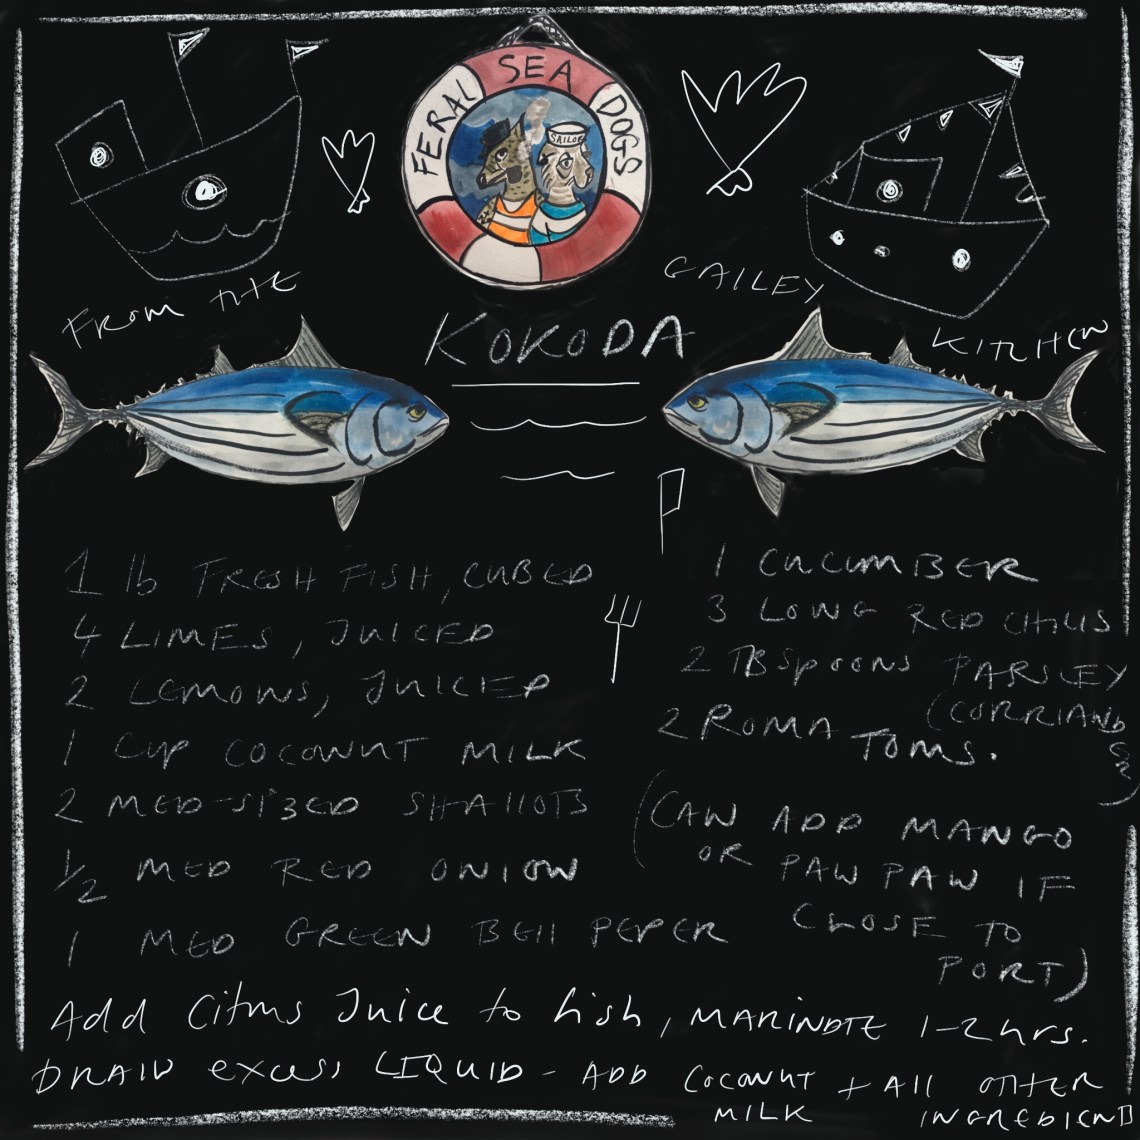 FERAL SEA DOGS
SAILOR
FROM THE
GAILEY
KITCHEN
KOKODA
1 lb FRESH FISH, CUBED
4 LIMES, JUICED
2 LEMONS, JUICED
1 Cup COCONUT MILK
2 MED-SIZED SHAllOTS
1/2 MED RED ONION
1 MED GREEN BEll PEPER
1 CUCUMBER
3 LONG RED CHILIS
2 TBSpoons PARSLEY
(CORRIAND
2 ROMA TOMS.
(CAN ADD MANGO
OR PAW PAW IF
CLOSE TO
PORT)
Add Citrus Juice to fish, MARINDTE 1-2 hrs.
DRAIN excess LIQUID - ADD COCONUT + All OTHER
MILK INGREDIENTS